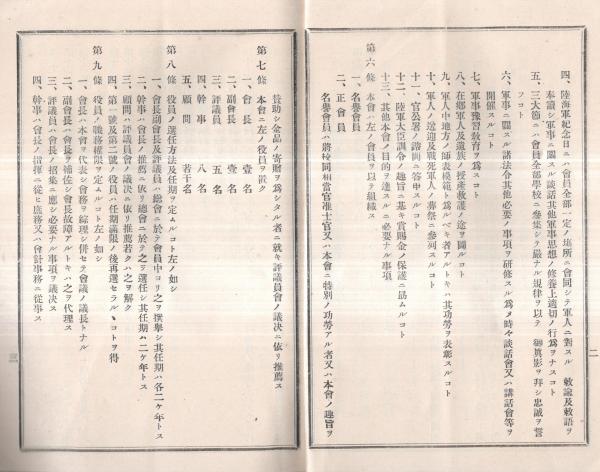 四、陸海軍紀念日ニハ會員全部一定ノ塲所ニ會同シテ軍人ニ對スル　敕諭及敕語ヲ
奉讀シ軍事ニ關スル談話其他軍事思想ノ修養上適切ノ行爲ヲナスコト
五、三大節ニハ會員全部學校ニ參集シテ嚴ナル規律ヲ以テ　御眞影ヲ拜シ忠誠ヲ誓
フコト
六、軍事ニ關スル諸法令其他必要ノ事項ヲ研修スル爲メ時々談話會又ハ講話會等ヲ
開催スルコト
七、軍事豫習敎育ヲ爲スコト
八、在鄕軍人及遺族ノ授產救護ノ途ヲ圖ルコト
九、軍人中地方ノ師表模範トナルベキ者アルトキハ其功勞ヲ表彰スルコト
十、軍人ノ送迎及戰死軍人ノ葬祭ニ參列スルコト
十一、官公署ノ諮問ニ答申スルコト
十二、陸軍大臣訓令ノ趣旨ニ基キ賞賜金ノ保護ニ勗ムルコト
十三、其他本會ノ目的ヲ達スルニ必要ナル事項
第六條　本會ハ左ノ會員ヲ以テ組織ス
一、名譽會員
二、正會員
名譽會員ハ將校同相當官准士官又ハ本會ニ特別ノ功勞アル者又ハ本會ノ趣旨ヲ
二
贊助シ金品ノ寄贈ヲ爲シタル者ニ就キ評議員會ノ議决ニ依リ推薦ス
第七條　本會ニ左ノ役員ヲ置ク
一、會長　壹名
二、副會長　壹名
三、評議員　五名
四、幹事　八名
五、顧問　若干名
第八條　役員ノ選任方法及任期ヲ定ムルコト左ノ如シ
一、會長副會長及評議員ハ總會ニ於テ會員中ヨリ之ヲ撰擧シ其任期ハ各二ケ年トス
二、幹事ハ會長ノ推薦ニ依リ總會ニ於テ之ヲ選任シ其任期ハ二ケ年トス
三、顧問ハ評議員會ノ議决ニ依リ推薦若クハ之ヲ解ク
四、第一號及第二號ノ役員ハ任期滿限ノ後再選セラルヽコトヲ得
第九條　役員ノ職務權限ヲ定ムルコト左ノ如シ
一、會長ハ本會ヲ代表シ會務ヲ綜理シ併セテ會議ノ議長トナル
二、副會長ハ會長ヲ補佐シ會長故障アルトキハ之ヲ代理ス
三、評議員ハ會長ノ招集ニ應シ必要ナル事項ヲ議决ス
四、幹事ハ會長ノ指揮ニ從ヒ庶務又ハ會計事務ニ從事ス
三